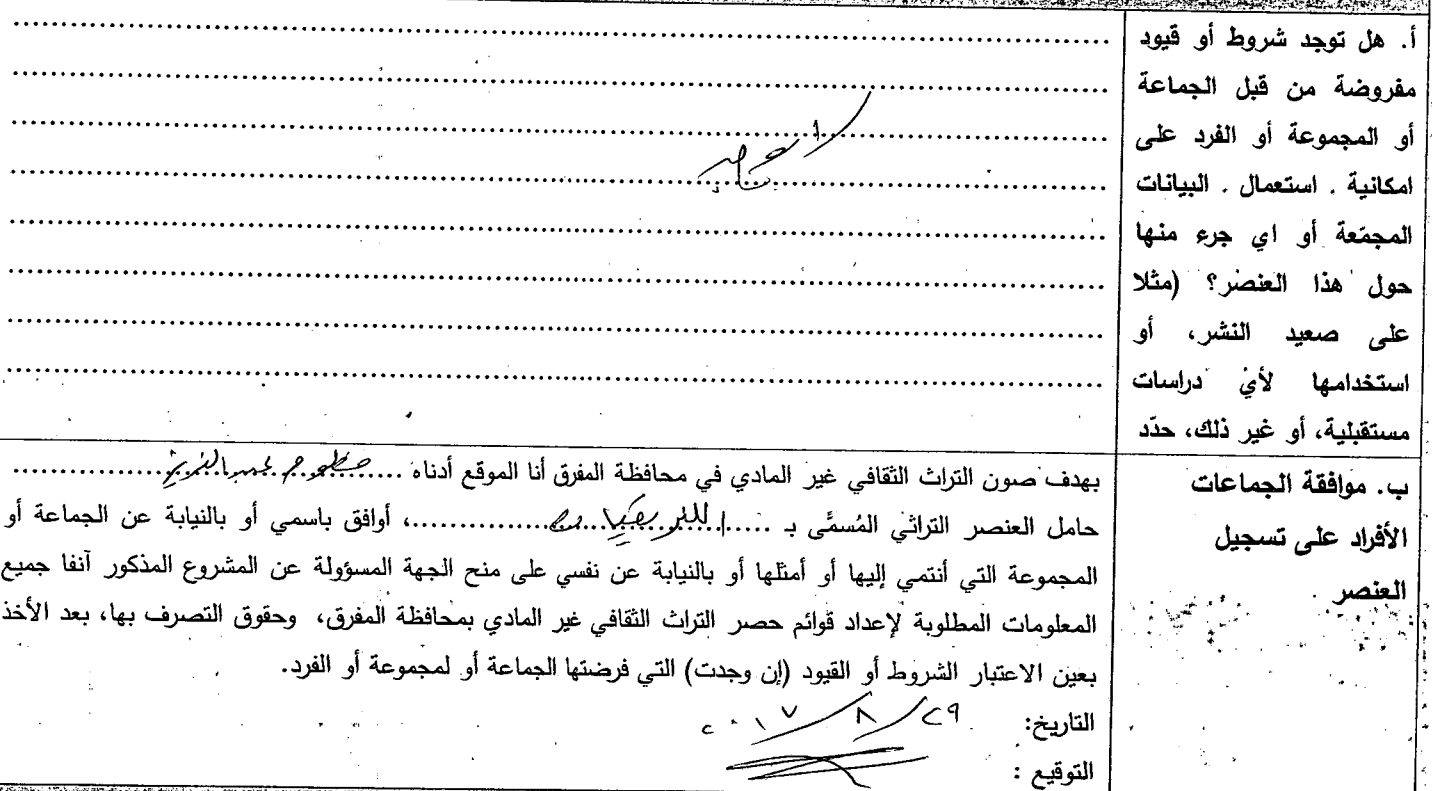 أ. هل توجد شروط أو قيود
مفروضة من قبل الجماعة
أو المجموعة أو الفرد على
امكانية . استعمال . البيانات
المجمّعة أو اي جرء منها
حول هذا العنصر؟ (مثلا
على صعيد النشر، أو
استخدامها لأي دراسات
مستقبلية، أو غير ذلك، حدّد
ب. موافقة الجماعات
الأفراد على تسجيل
العنصر
بهدف صون التراث الثقافي غير المادي في محافظة المفرق أنا الموقع أدناه
حامل العنصر التراثي المُسمَّى بـ ، أوافق باسمي أو بالنيابة عن الجماعة أو
المجموعة التي أنتمي إليها أو أمثلها أو بالنيابة عن نفسي على منح الجهة المسؤولة عن المشروع المذكور آنفا جميع
المعلومات المطلوبة لإعداد قوائم حصر التراث الثقافي غير المادي بمحافظة المفرق، وحقوق التصرف بها، بعد الأخذ
بعين الاعتبار الشروط أو القيود (إن وجدت) التي فرضتها الجماعة أو لمجموعة أو الفرد.
التاريخ: ٢٩/٨/٢٠١٧
التوقيع :